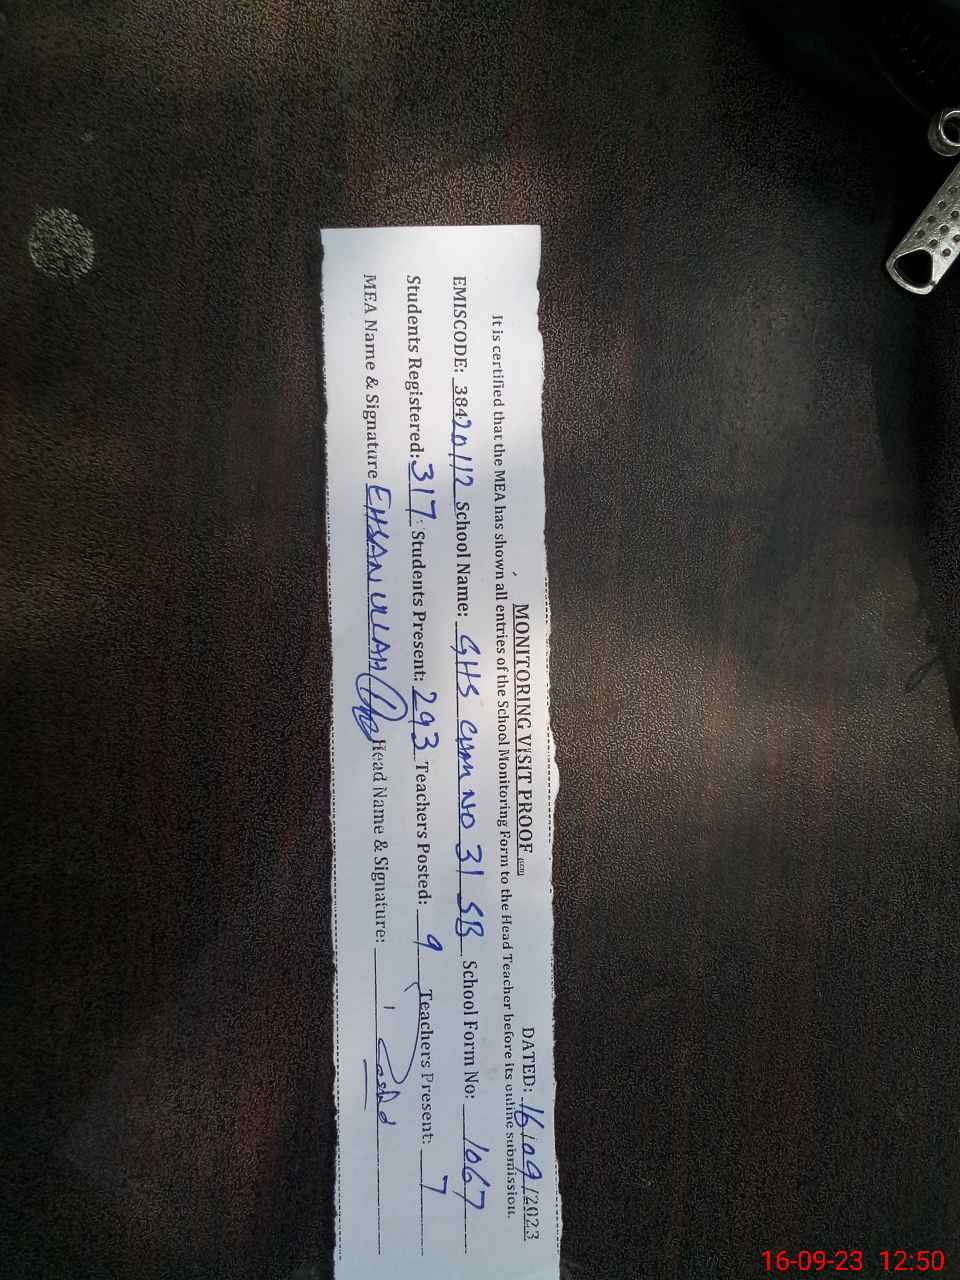 MONITORING VISIT PROOF DATED: 16/09/2023
It is certified that the MEA has shown all entries of the School Monitoring Form to the Head Teacher before its online submission.
EMISCODE: 38420112 School Name: GHS CHAK NO 31 SB School Form No: 1067
Students Registered: 317 Students Present: 293 Teachers Posted: 9 Teachers Present: 7
MEA Name & Signature EHSAN ULLAH Head Name & Signature:
16-09-23 12:50